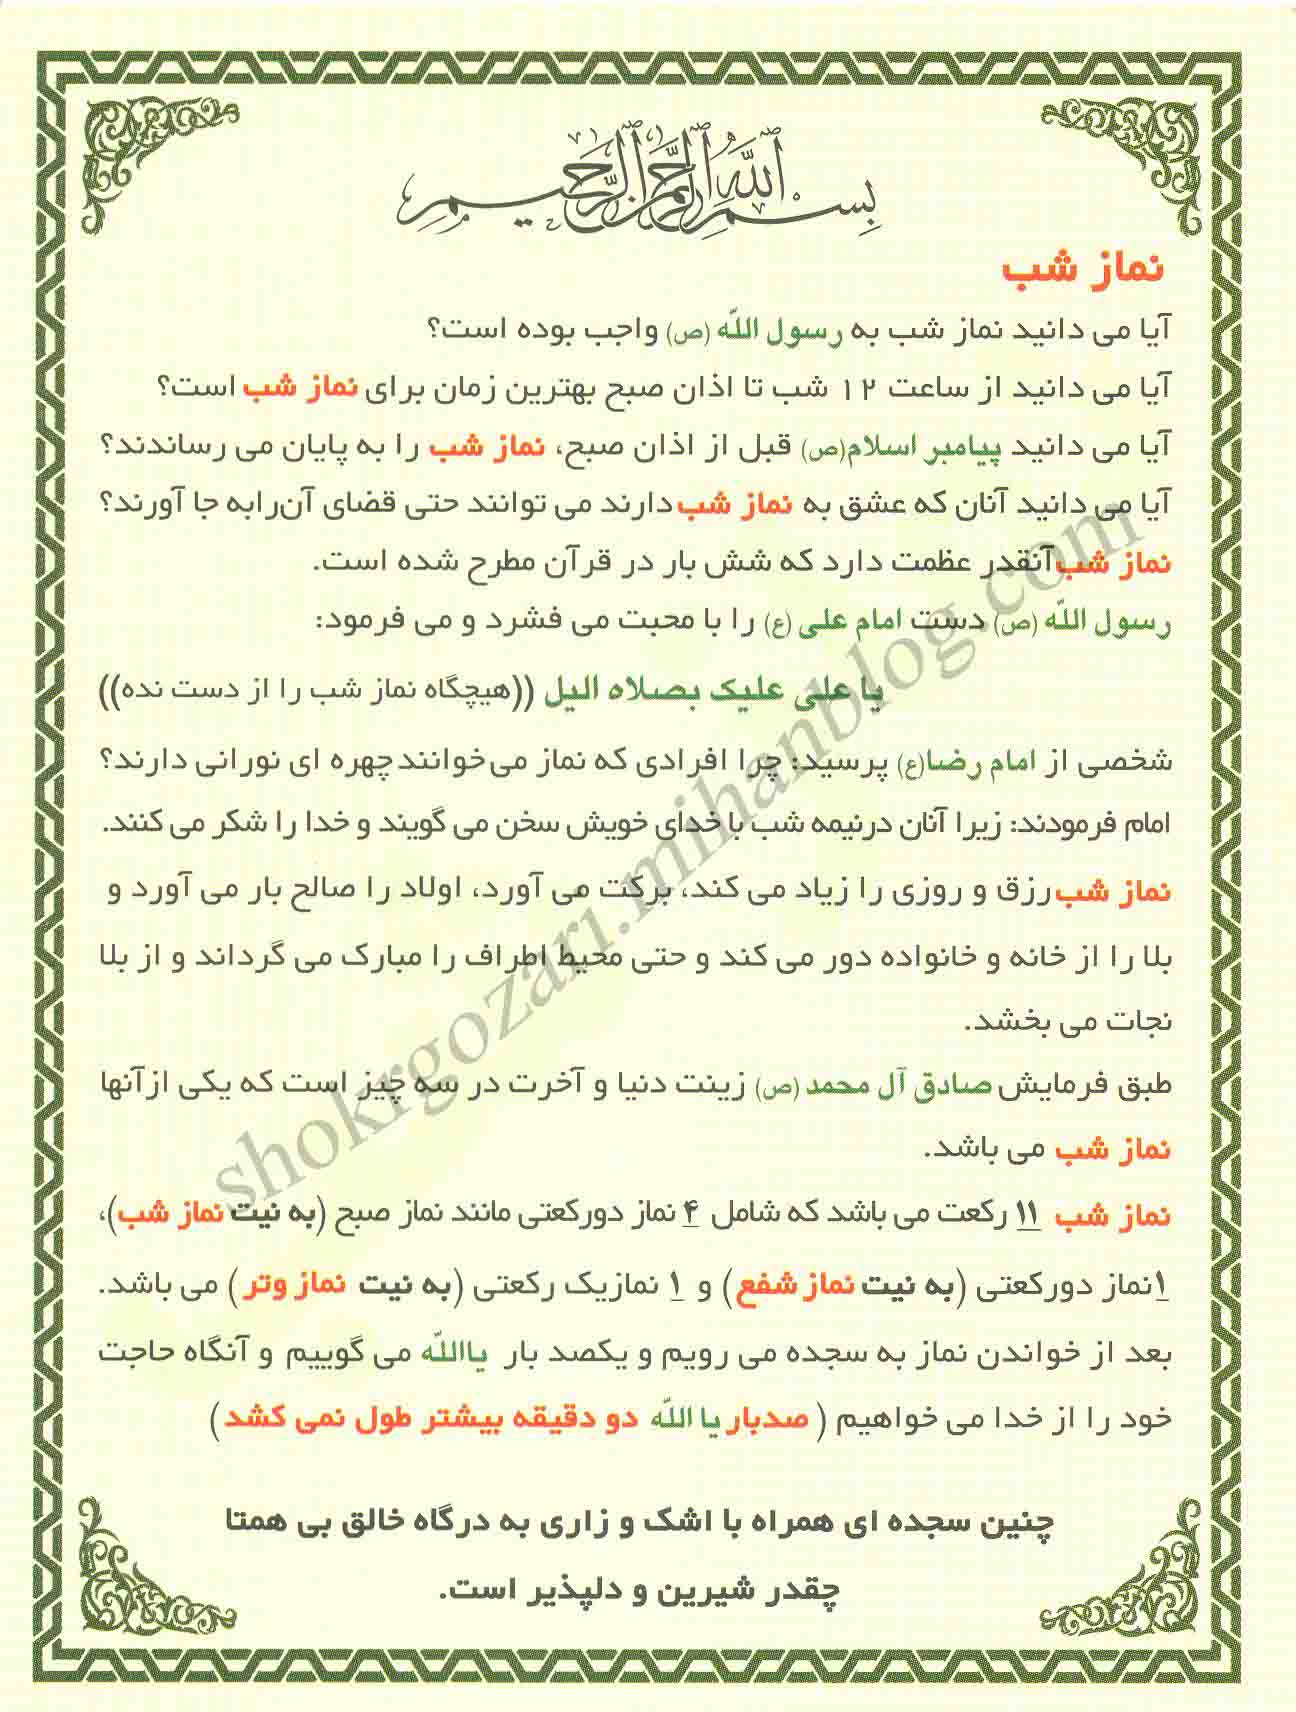 بسم الله الرحمن الرحیم
نماز شب
آیا می دانید نماز شب به رسول اللّه (ص) واجب بوده است؟
آیا می دانید از ساعت ۱۲ شب تا اذان صبح بهترین زمان برای نماز شب است؟
آیا می دانید پیامبر اسلام(ص) قبل از اذان صبح، نماز شب را به پایان می رساندند؟
آیا می دانید آنان که عشق به نماز شب دارند می توانند حتی قضای آن رابه جا آورند؟
نماز شب آنقدر عظمت دارد که شش بار در قرآن مطرح شده است.
رسول اللّه (ص) دست امام علی (ع) را با محبت می فشرد و می فرمود:
یا علی علیک بصلاه الیل ((هیچگاه نماز شب را از دست نده))
شخصی از امام رضا(ع) پرسید: چرا افرادی که نماز می خوانند چهره ای نورانی دارند؟
امام فرمودند: زیرا آنان درنیمه شب با خدای خویش سخن می گویند و خدا را شکر می کنند.
نماز شب رزق و روزی را زیاد می کند، برکت می آورد، اولاد را صالح بار می آورد و
بلا را از خانه و خانواده دور می کند و حتی محیط اطراف را مبارک می گرداند و از بلا
نجات می بخشد.
طبق فرمایش صادق آل محمد (ص) زینت دنیا و آخرت در سه چیز است که یکی ازآنها
نماز شب می باشد.
نماز شب ۱۱ رکعت می باشد که شامل ۴ نماز دورکعتی مانند نماز صبح (به نیت نماز شب)،
۱نماز دورکعتی (به نیت نماز شفع) و ۱ نمازیک رکعتی (به نیت نماز وتر) می باشد.
بعد از خواندن نماز به سجده می رویم و یکصد بار یااللّه می گوییم و آنگاه حاجت
خود را از خدا می خواهیم (صدبار یا اللّه دو دقیقه بیشتر طول نمی کشد)
چنین سجده ای همراه با اشک و زاری به درگاه خالق بی همتا
چقدر شیرین و دلپذیر است.
shokrgozari.mihanblog.com